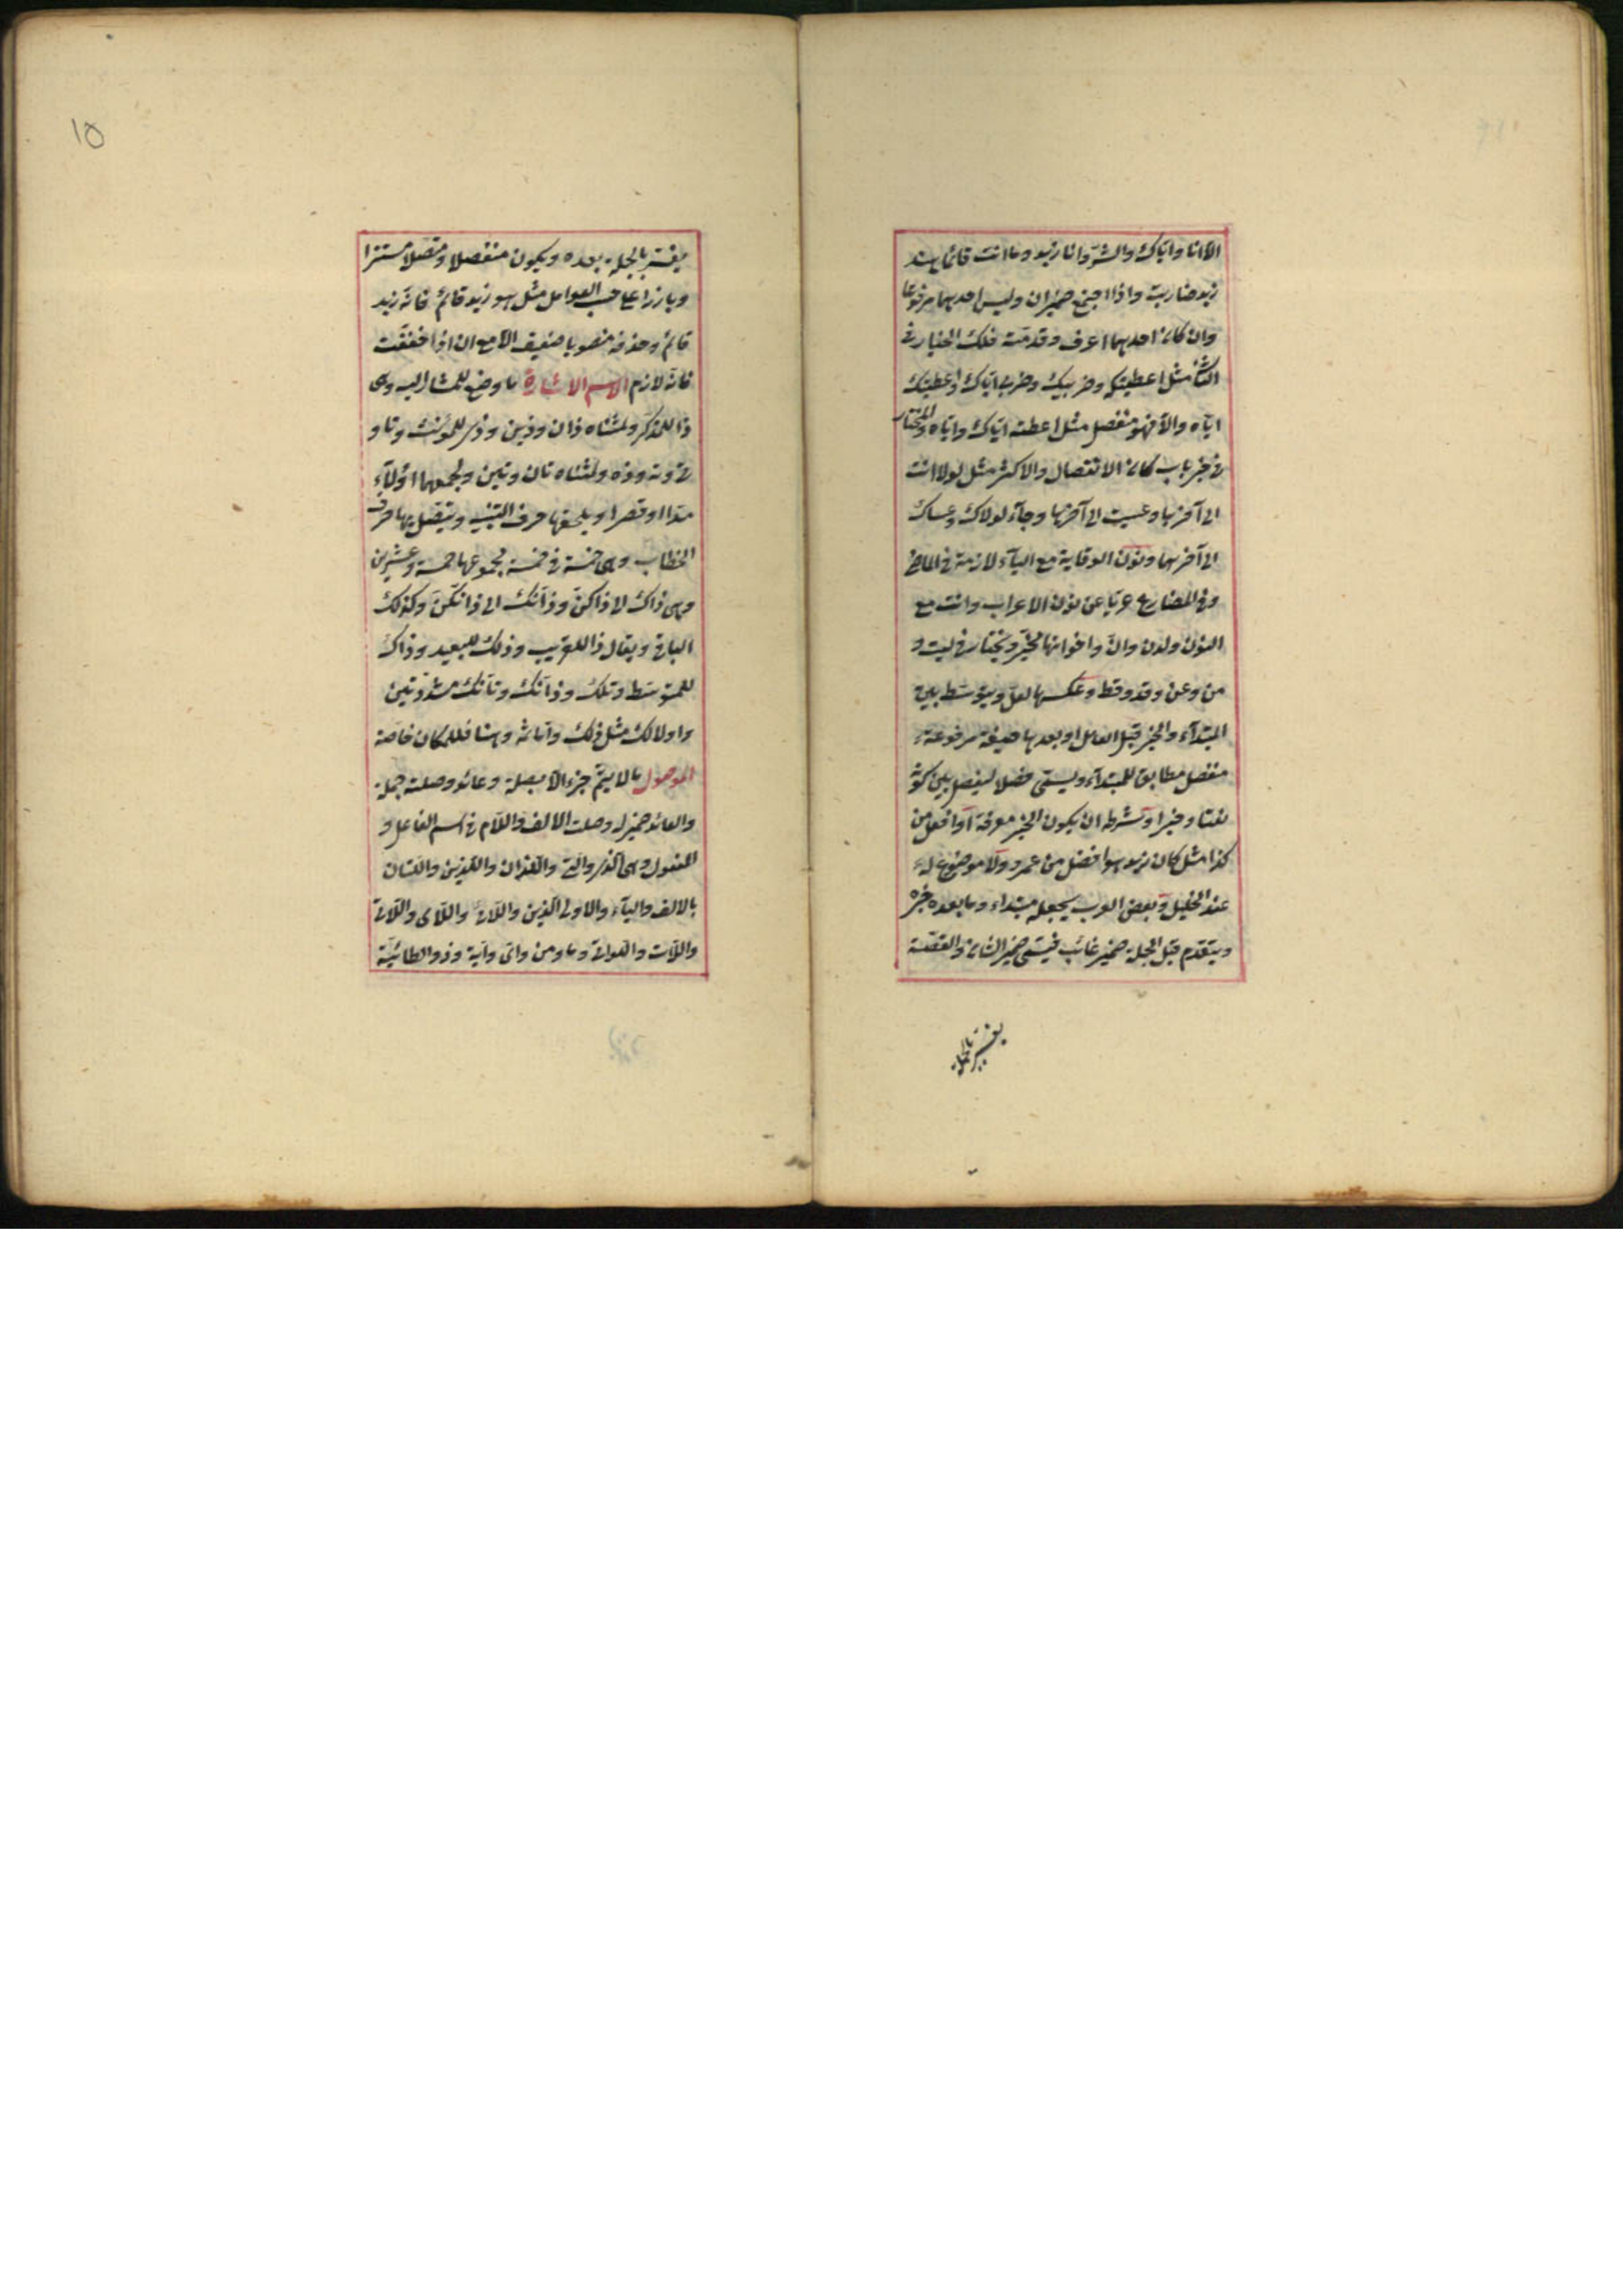 الا انا واياك والشرّ وانا زيد وما انت قائما وهند
زيد ضاربته واذا اجتمع ضميران وليس احدهما مرفوعا
وان كان احدهما اعرف وقدمته فلك الخيار في
الثاني مثل اعطيتكه وضربيك وضربي اياك واعطيتك
اياه والا فهو منفصل مثل اعطيته اياك واياه والمختار
في خبر باب كان الانفصال والاكثر مثل لولا انت
الى آخرها وعسيت الى آخرها وجاء لولاك وعساك
الى آخرهما ونون الوقاية مع الياء لازمة في الماضي
وفي المضارع عريّا عن نون الاعراب وانت مع
النون ولدن وانّ واخواتها مخيّر ويختار في ليت و
من وعن وقد وقط وعكسها لعلّ ويتوسّط بين
المبتدأ والخبر قبل العامل او بعدها صيغة مرفوعة
منفصل مطابق للمبتدأ ويسمّى فصلا ليفصل بين كونه
نعتا وخبرا وشرطه ان يكون الخبر معرفة او افعل من
كذا مثل كان زيد هو افضل من عمرو ولا موضع له
عند الخليل وبعض العرب يجعله مبتدأ وما بعده خبره
ويتقدم قبل الجملة ضمير غائب فيسمّى ضمير الشان والقصّة
يفسر بالجملة
١٥
يفسّر بالجملة بعده ويكون منفصلا ومتصلا مستترا
وبارزا على حسب العوامل مثل هو زيد قائم فانّه زيد
قائم وحذفه منصوبا ضعيف الا مع ان اذا خففت
فانّه لازم الاسم الاشارة ما وضع للمشار اليه وهي
ذا للمذكّر ولمثناه ذان وذين وذي للمؤنث وتا و
تي وته وذه ولمثناه تان وتين ولجمعهما اولاء
مدّا او قصرا ويلحقها حرف التنبيه ويتصل بها حرف
الخطاب وهي خمسة في خمسة مجموعها خمسة وعشرين
وهي ذاك الى ذاكنّ وذانك الى ذانكنّ وكذلك
الباقي ويقال ذا للقريب وذلك للبعيد وذاك
للمتوسّط وتلك وذانك وتانك مشدّدتين
واولالك مثل ذلك واما ثمّ وهنا فللمكان خاصّة
الموصول ما لا يتمّ جزءا الا بصلة وعائد وصلته جملة
والعائد ضمير له وصلة الالف واللام في اسم الفاعل و
المفعول وهي الذي والتي واللذان واللذين واللتان
بالالف والياء والاولى الذين واللائي واللاى واللاتي
واللات واللواتي وما ومن واىّ وايّة وذو الطائيّة